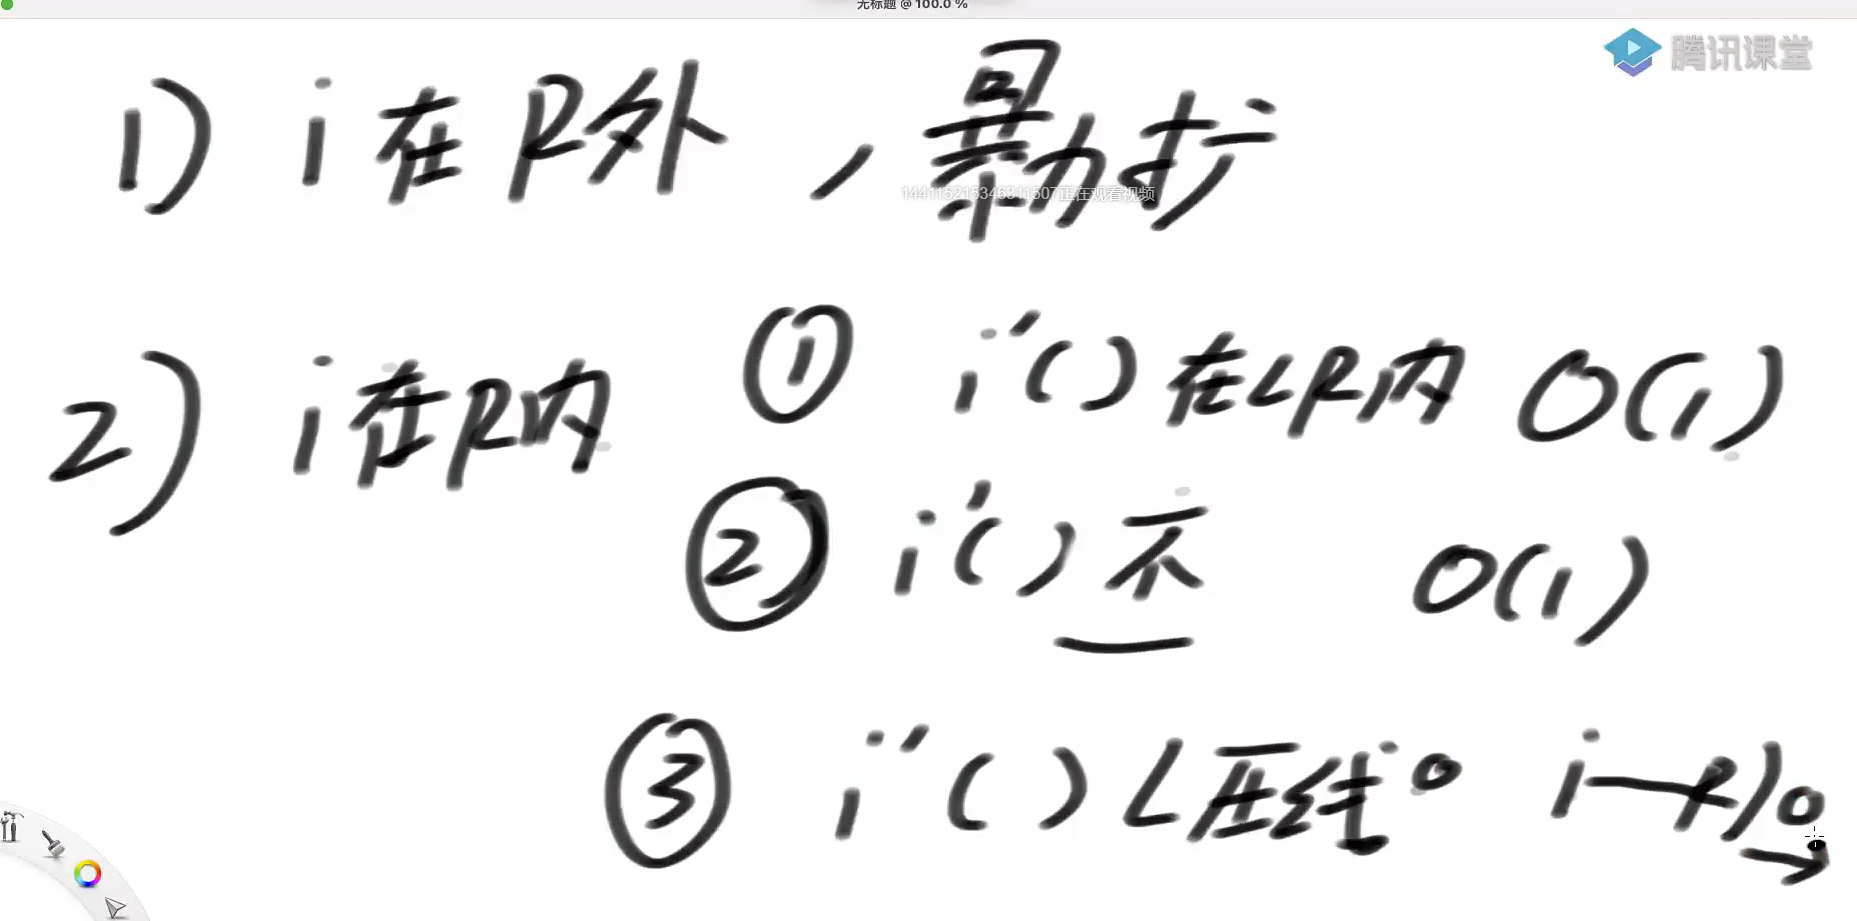 无标题 @ 100.0 %
腾讯课堂
1) i 在 R外 , 暴力扩
144115215346311507正在观看视频
2) i 在R内 ① i'( ) 在LR内 O(1)
② i'( ) 不 O(1)
③ i'( ) L压线 。 i—R) 。